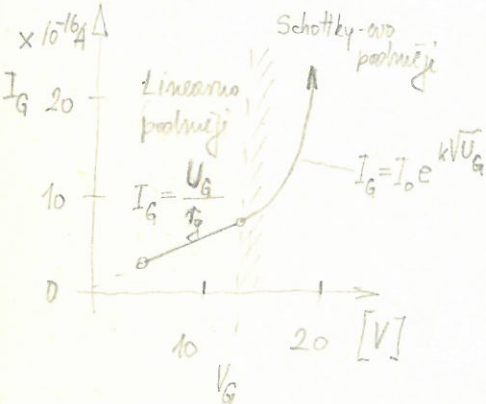 × 10⁻¹⁶ A
I_G
20
10
0
Linearno
područji
I_G = U_G / r_g
Schottky-evo
područji
I_G = I_0 e^{k√U_G}
10
20
[V]
V_G